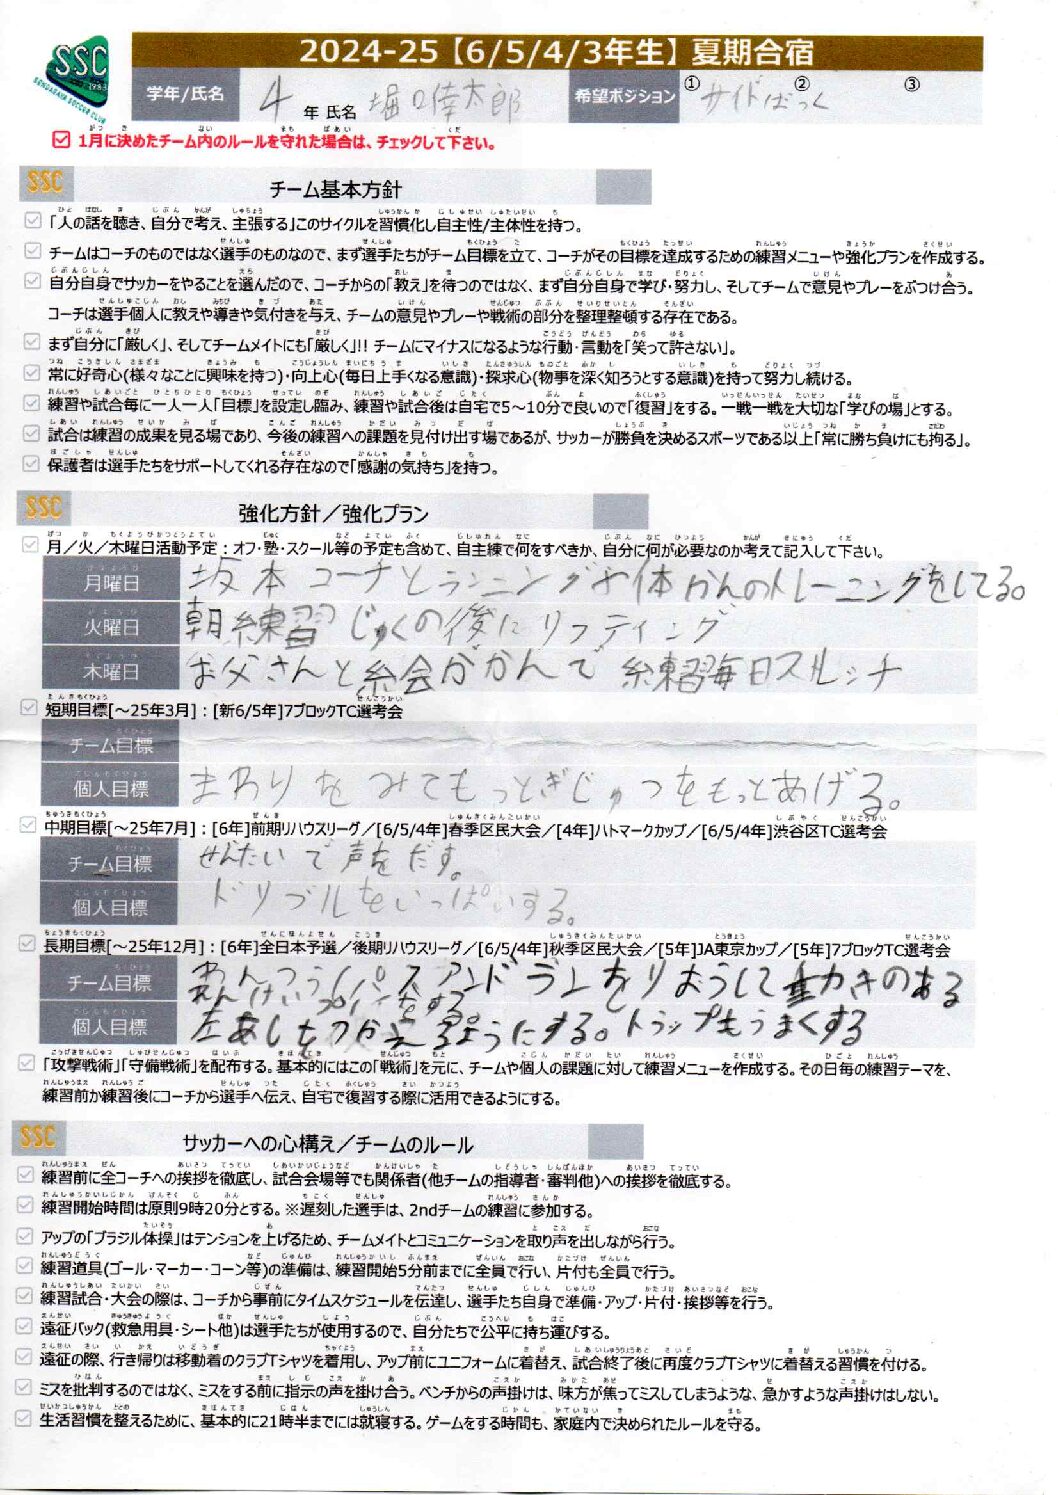 SSC
SENDAGAYA SOCCER CLUB
1983
2024-25【6/5/4/3年生】夏期合宿
学年/氏名 4 年 氏名 堀口倖太郎 希望ポジション ① サイドばっく ② ③
1月に決めたチーム内のルールを守れた場合は、チェックして下さい。
SSC チーム基本方針
「人の話を聴き、自分で考え、主張する」このサイクルを習慣化し自主性/主体性を持つ。
チームはコーチのものではなく選手のものなので、まず選手たちがチーム目標を立て、コーチがその目標を達成するための練習メニューや強化プランを作成する。
自分自身でサッカーをやることを選んだので、コーチからの「教え」を待つのではなく、まず自分自身で学び・努力し、そしてチームで意見やプレーをぶつけ合う。
コーチは選手個人に教えや導きや気付きを与え、チームの意見やプレーや戦術の部分を整理整頓する存在である。
まず自分に「厳しく」、そしてチームメイトにも「厳しく」!! チームにマイナスになるような行動・言動を「笑って許さない」。
常に好奇心(様々なことに興味を持つ)・向上心(毎日上手くなる意識)・探求心(物事を深く知ろうとする意識)を持って努力し続ける。
練習や試合毎に一人一人「目標」を設定し臨み、練習や試合後は自宅で5～10分で良いので「復習」をする。一戦一戦を大切な「学びの場」とする。
試合は練習の成果を見る場であり、今後の練習への課題を見付け出す場であるが、サッカーが勝負を決めるスポーツである以上「常に勝ち負けにも拘る」。
保護者は選手たちをサポートしてくれる存在なので「感謝の気持ち」を持つ。
SSC 強化方針／強化プラン
月／火／木曜日活動予定：オフ・塾・スクール等の予定も含めて、自主練で何をすべきか、自分に何が必要なのか考えて記入して下さい。
月曜日 坂本コーチとランニングや体かんのトレーニングをしてる。
火曜日 朝練習じゅくの後にリフティング
木曜日 お父さんと絵会がかんで練習毎日スルッチ
短期目標[～25年3月]：[新6/5年]7ブロックTC選考会
チーム目標
個人目標 まわりをみてもっとぎじゅつをもっとあげる。
中期目標[～25年7月]：[6年]前期リハウスリーグ／[6/5/4年]春季区民大会／[4年]ハトマークカップ／[6/5/4年]渋谷区TC選考会
チーム目標 ぜんたいで声をだす。
個人目標 ドリブルをいっぱいする。
長期目標[～25年12月]：[6年]全日本予選／後期リハウスリーグ／[6/5/4年]秋季区民大会／[5年]JA東京カップ／[5年]7ブロックTC選考会
チーム目標 わんつう(パスアンドランをりようして動きのある
れんけいプレイをする。
個人目標 左あしをつかえるようにする。トラップもうまくする
「攻撃戦術」「守備戦術」を配布する。基本的にはこの「戦術」を元に、チームや個人の課題に対して練習メニューを作成する。その日毎の練習テーマを、
練習前か練習後にコーチから選手へ伝え、自宅で復習する際に活用できるようにする。
SSC サッカーへの心構え／チームのルール
練習前に全コーチへの挨拶を徹底し、試合会場等でも関係者(他チームの指導者・審判他)への挨拶を徹底する。
練習開始時間は原則9時20分とする。※遅刻した選手は、2ndチームの練習に参加する。
アップの「ブラジル体操」はテンションを上げるため、チームメイトとコミュニケーションを取り声を出しながら行う。
練習道具(ゴール・マーカー・コーン等)の準備は、練習開始5分前までに全員で行い、片付も全員で行う。
練習試合・大会の際は、コーチから事前にタイムスケジュールを伝達し、選手たち自身で準備・アップ・片付・挨拶等を行う。
遠征バック(救急用具・シート他)は選手たちが使用するので、自分たちで公平に持ち運びする。
遠征の際、行き帰りは移動着のクラブTシャツを着用し、アップ前にユニフォームに着替え、試合終了後に再度クラブTシャツに着替える習慣を付ける。
ミスを批判するのではなく、ミスをする前に指示の声を掛け合う。ベンチからの声掛けは、味方が焦ってミスしてしまうような、急かすような声掛けはしない。
生活習慣を整えるために、基本的に21時半までには就寝する。ゲームをする時間も、家庭内で決められたルールを守る。